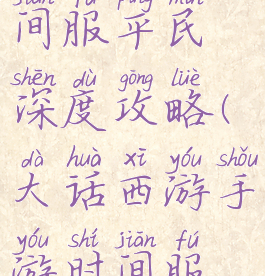 jiān fú píng mín
间服平民
shēn dù gōng lüè
深度攻略(
dà huà xī yóu shǒu
大话西游手
yóu shí jiān fú
游时间服